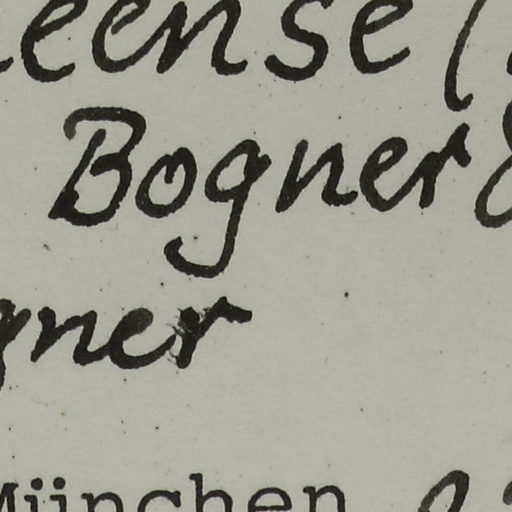 eense (
Bogner &
gner
München